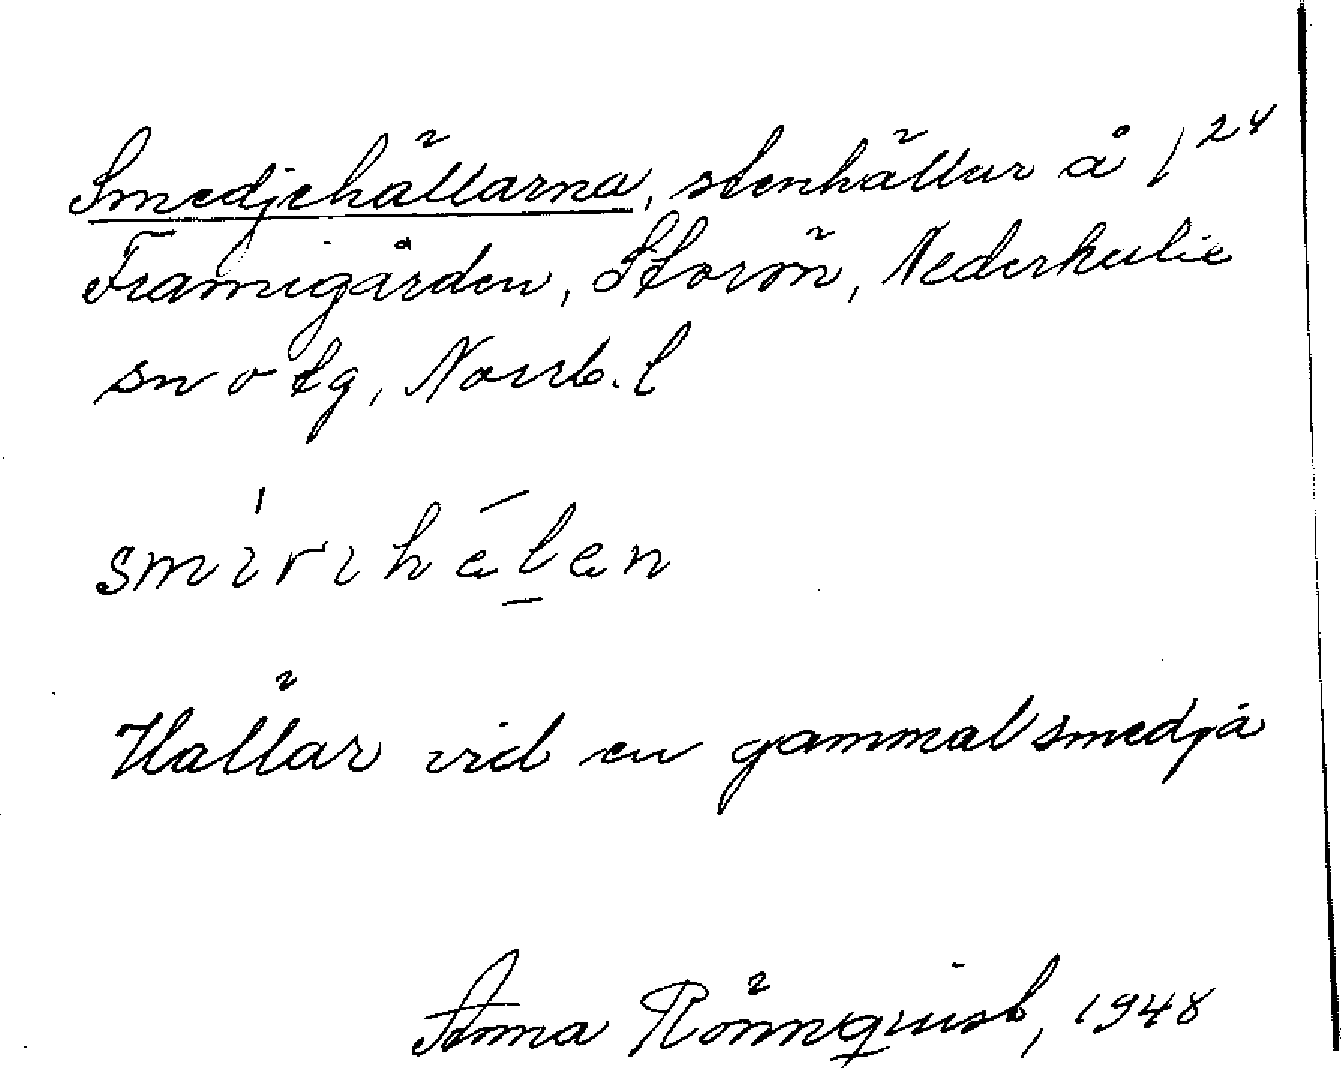 Smedjehällarna, stenhällar å 1²⁴
Framigården, Storön, Nederkalix
sn o tg, Norrb. l
smìrıhélen
Hällar vid en gammal smedja
Anna Rönnquist, 1948